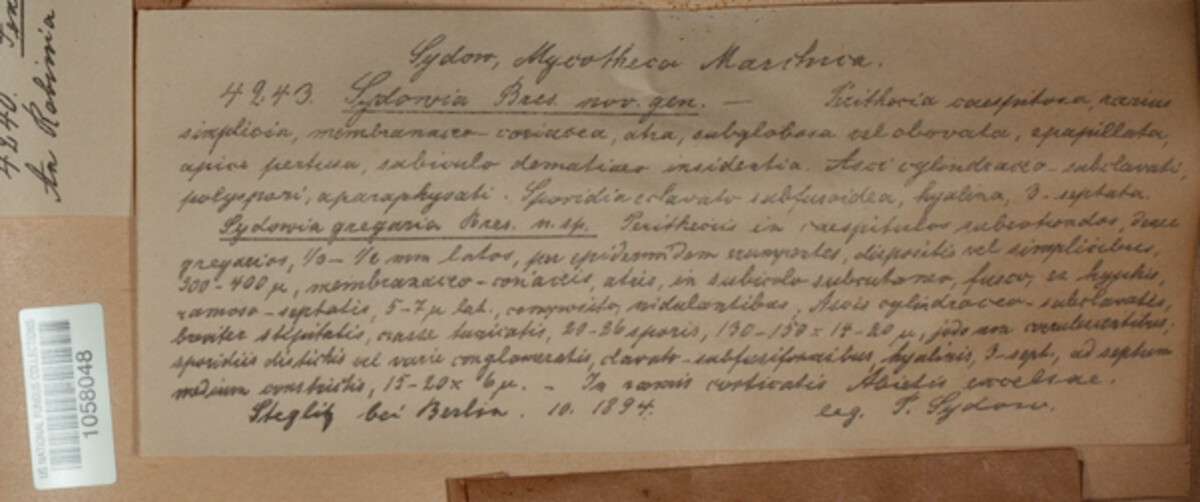 Sydow, Mycotheca Marchica.
4243. Sydowia Bres. nov. gen. — Perithecia caespitosa, rarius
simplicia, membranaceo-coriacea, atra, subglobosa vel obovata, epapillata,
apice pertusa, subiculo dematieo insidentia. Asci cylindraceo-subclavati,
polyspori, aparaphysati. Sporidia clavato subfusoidea, hyalina, 3-septata.
Sydowia gregaria Bres. n. sp. Peritheciis in caespitulos subrotundos, dense
gregarios, 1/3-1/2 mm latos, per epidermidem erumpentes, dispositis vel simplicibus,
300-400 µ, membranaceo-coriaceis, atris, in subiculo subcutaneo, fusco, ex hyphis,
ramoso-septatis, 5-7 µ lat., composito, nidulantibus. Ascis cylindraceo-subclavatis,
breviter stipitatis, crasse tunicatis, 20-26 sporis, 130-150 x 14-20 µ, jodo non coerulescentibus;
sporidiis distichis vel varie conglomeratis, clavato-subfusiformibus, hyalinis, 3-sept., ad septum
medium constrictis, 15-20 x 6 µ. - In ramis corticatis Abietis excelsae.
Steglitz bei Berlin. 10. 1894. leg. P. Sydow.
4240.
An Robinia
US NATIONAL FUNGUS COLLECTIONS
1058048